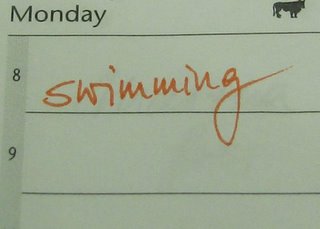 Monday
8 swimming
9